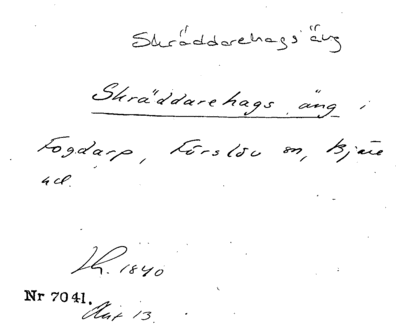 Skräddarehags äng
Skräddarehags äng i
Fogdarp, Förslöv sn, Bjäre
hd.
1840
Nr 7041.
Akt 13.